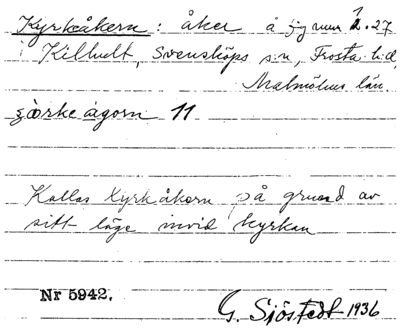 Kyrkåkern: åker å jg num 1.27
i Killhult, Svensköps s:n, Frosta h:d,
Malmöhus län.
11
Kallas Kyrkåkern på grund av
sitt läge invid kyrkan
Nr 5942.
G. Sjöstedt 1936